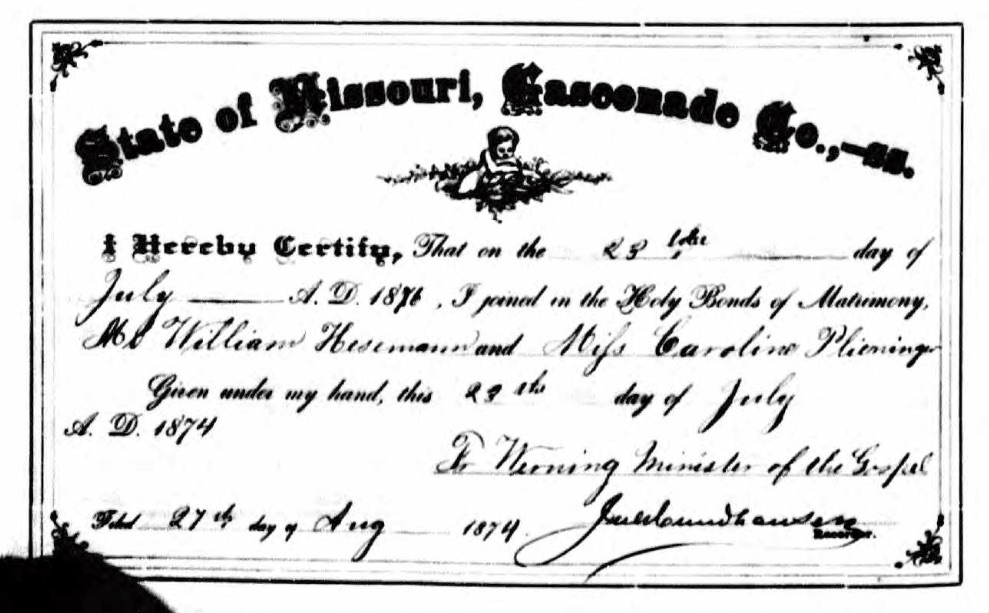 State of Missouri, Gasconade Co.,—ss.
I Hereby Certify, That on the 23 the day of
July A. D. 1876, I joined in the Holy Bonds of Matrimony,
Mr William Hesemann and Miss Caroline Plieninger
Given under my hand, this 23 ths day of July
A. D. 1874
Fr Werning Minister of the Gospel
Filed 27th day of Aug 1874
Recorder.